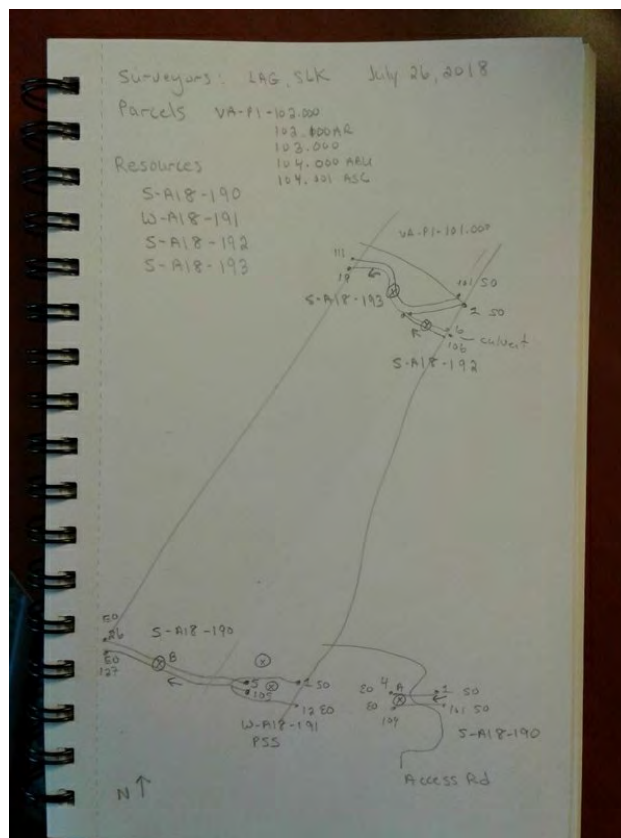 Surveyors: LAG, SLK July 26, 2018
Parcels VA-P1-102.000
102.100AR
103.000
104.000 ABU
104.001 ASC
Resources
S-A18-190
W-A18-191
S-A18-192
S-A18-193
VA-P1-101.000
111
19
101 SO
1 SO
S-A18-193
6
culvert
106
S-A18-192
EO
26
S-A18-190
B
EO
127
5
105
1 SO
12 EO
W-A18-191
PSS
EO 4 A 1 SO
EO 101 SO
104
S-A18-190
Access Rd
N